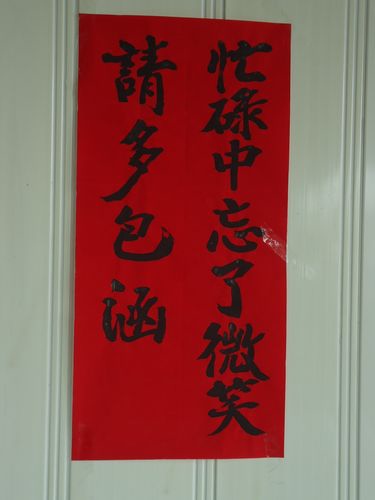 忙碌中忘了微笑
請多包涵